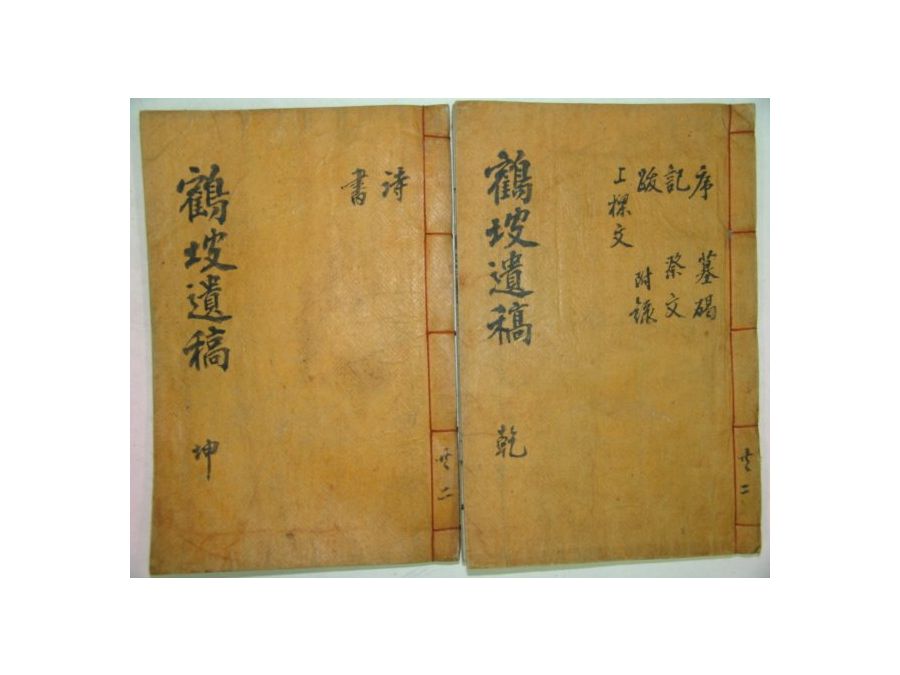 序 墓碣
記 祭文
跋 附錄
上樑文
鶴坡遺稿 乾
共二
詩
書
鶴坡遺稿 坤
共二